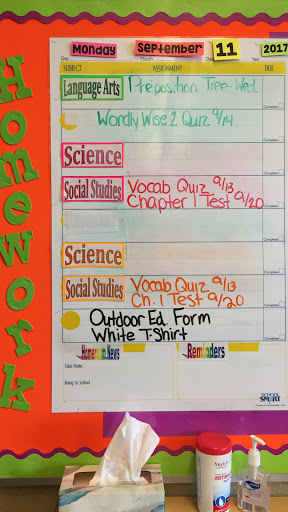 Homework
Monday September 11 2017
SUBJECT ASSIGNMENT DUE
Language Arts Preposition Tree-Wed.
Complete
Wordly Wise 2 Quiz 9/14
Complete
Science
Complete
Social Studies Vocab Quiz 9/13
Chapter 1 Test 9/20
Complete
Complete
Science
Complete
Social Studies Vocab Quiz 9/13
Ch. 1 Test 9/20
Complete
Outdoor Ed. Form
White T-Shirt
Complete
Homeroom News Reminders
Take Home:
Bring to School:
SCHOOL
SMART